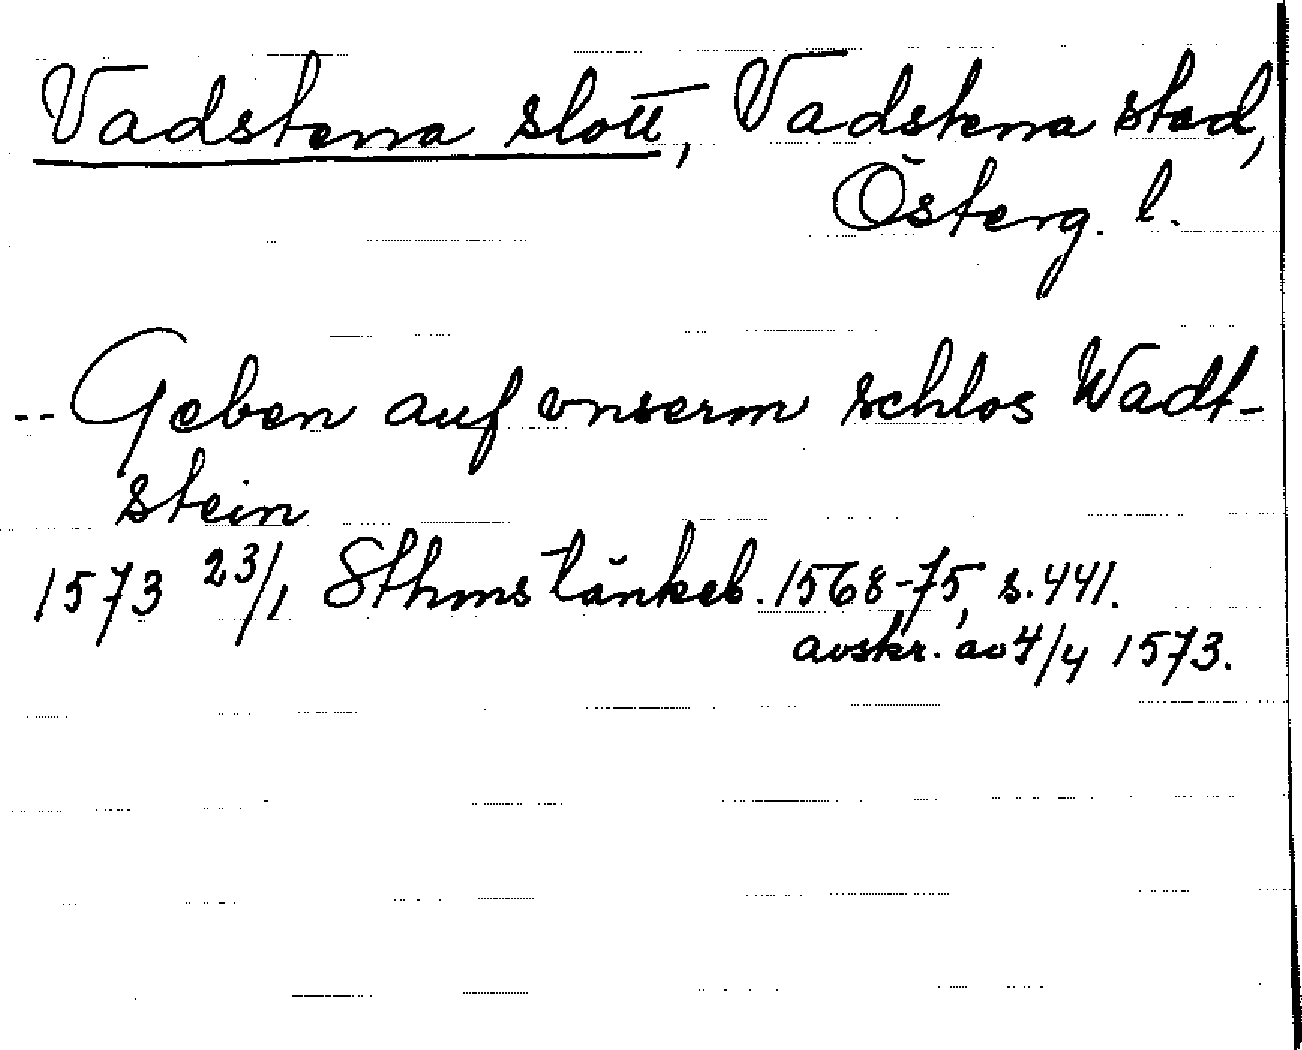 Vadstena slott, Vadstena stad,
Österg. l.
-- Geben auf vnserm schlos Wadt-
stein
1573 23/1 Sthms tänkeb. 1568-75, s. 441.
avskr. av 4/4 1573.